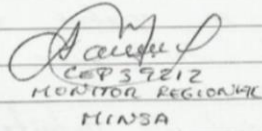 CEP 39212
MONITOR REGIONAL
MINSA